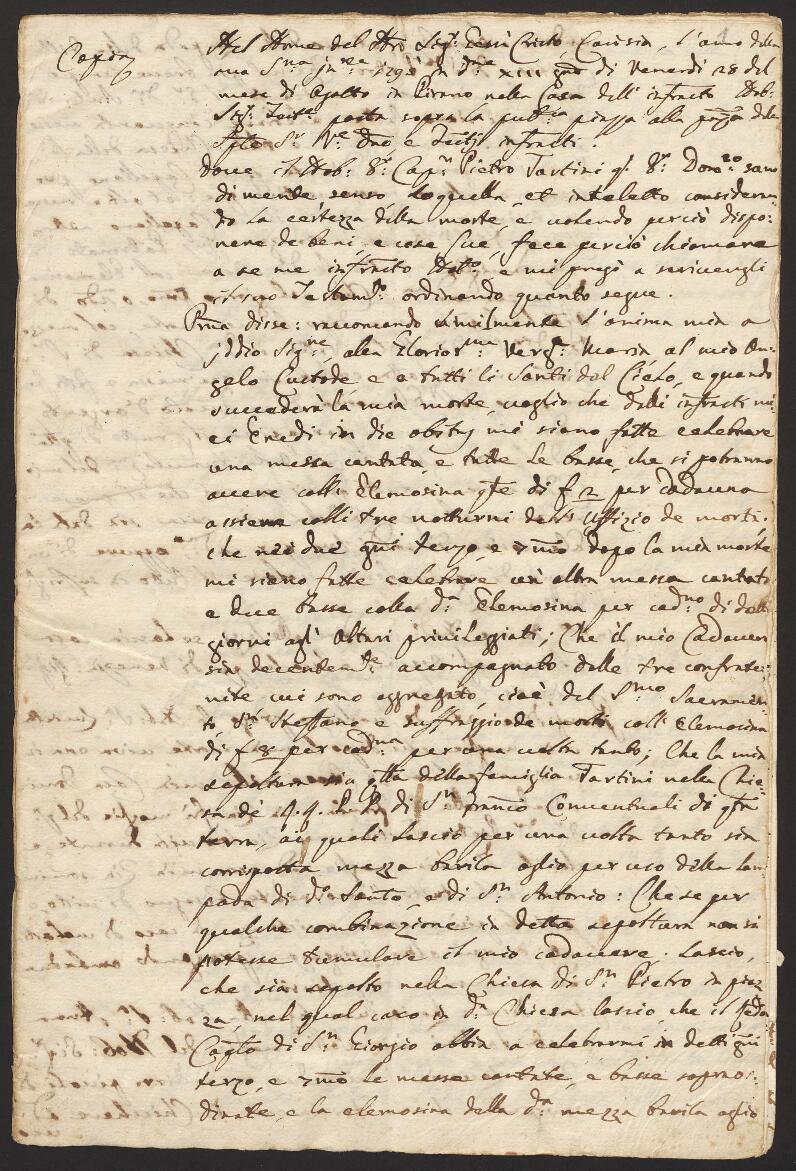 Copia
Nel Nome del Nro Sig.r Gesù Cristo, Corr L'anno della
sua S.ma 17 in d.ne XIII giorno di Venerdì 28 del
mese di in Pirano nella Casa dell' infratto Nob:
Sig.r Test.e posta sopra la pub.ca piazza alla pñza delli
Sp.le S.r V.e Dno e Testij infratti.
Dove il Nob: S.r Cap.n Pietro Tartini q. S.r Dom.co sano
di mente, senso, loquella, et inteletto consideran
do la certezza della morte, e volendo perciò dispo:
nere de beni, e cose sue, fece perciò chiamare
a se me infratto Nod.o, e mi pregò a scrivergli
il suo Testam.to ordinando quanto segue.
Pma disse: racomando umilmente l'anima mia a
jddio Sig.re, alla Glorios.ma Verg.e Maria, al mio An
gelo Custode e a tutti li Santi del Cielo, e quando
succederà la mia morte, voglio che dalli infratti mi
ei Eredi in die obitus mi siano fatte celebrare
una messa cantata, e tutte le basse, che si potranno
avere coll' Elemosina q.te di f 2 per cadauna
assieme colli tre notturni dell' Uffizio de morti.
che nei due gni terzo, e 7mo dopo la mia morte
mi siano fatte celebrare un' altra messa cantata
e due basse colla d.a Elemosina per cad.no di detti
giorni agl' Altari privileggiati; Che il mio Cadaver
sia decentem.te accompagnato dalle tre confrater
nite cui sono aggregato, cioè del S.mo Sacramen
to, S.n Steffano e suffraggio de morti coll' Elemosina
di f 8 per cad.na per una volta tanto; Che la mia
sepoltura sia q.lla della famiglia Tartini nella Chie
sa de' q. q. P. P. di S.n Franco Conventuali di q.ta
terra, ai quali lascio per una volta tanto sia
corrisposta mezza barila oglio per uso della lam
pada di d.o Santo, e di S.n Antonio: Che se per
qualche combinazione in detta sepoltura non si
potesse tumulare il mio cadavere, lascio,
che sia sepolto nella Chiesa di S.n Pietro in piaz
za, nel qual caso in d.a Chiesa lascio, che il
Cap.to di S.n Giorgio abbia a celebrarmi in detti gni
terzo, e 7mo le messe cantate, e basse sopraor:
dinate, e la elemosina della d.a mezza barila oglio